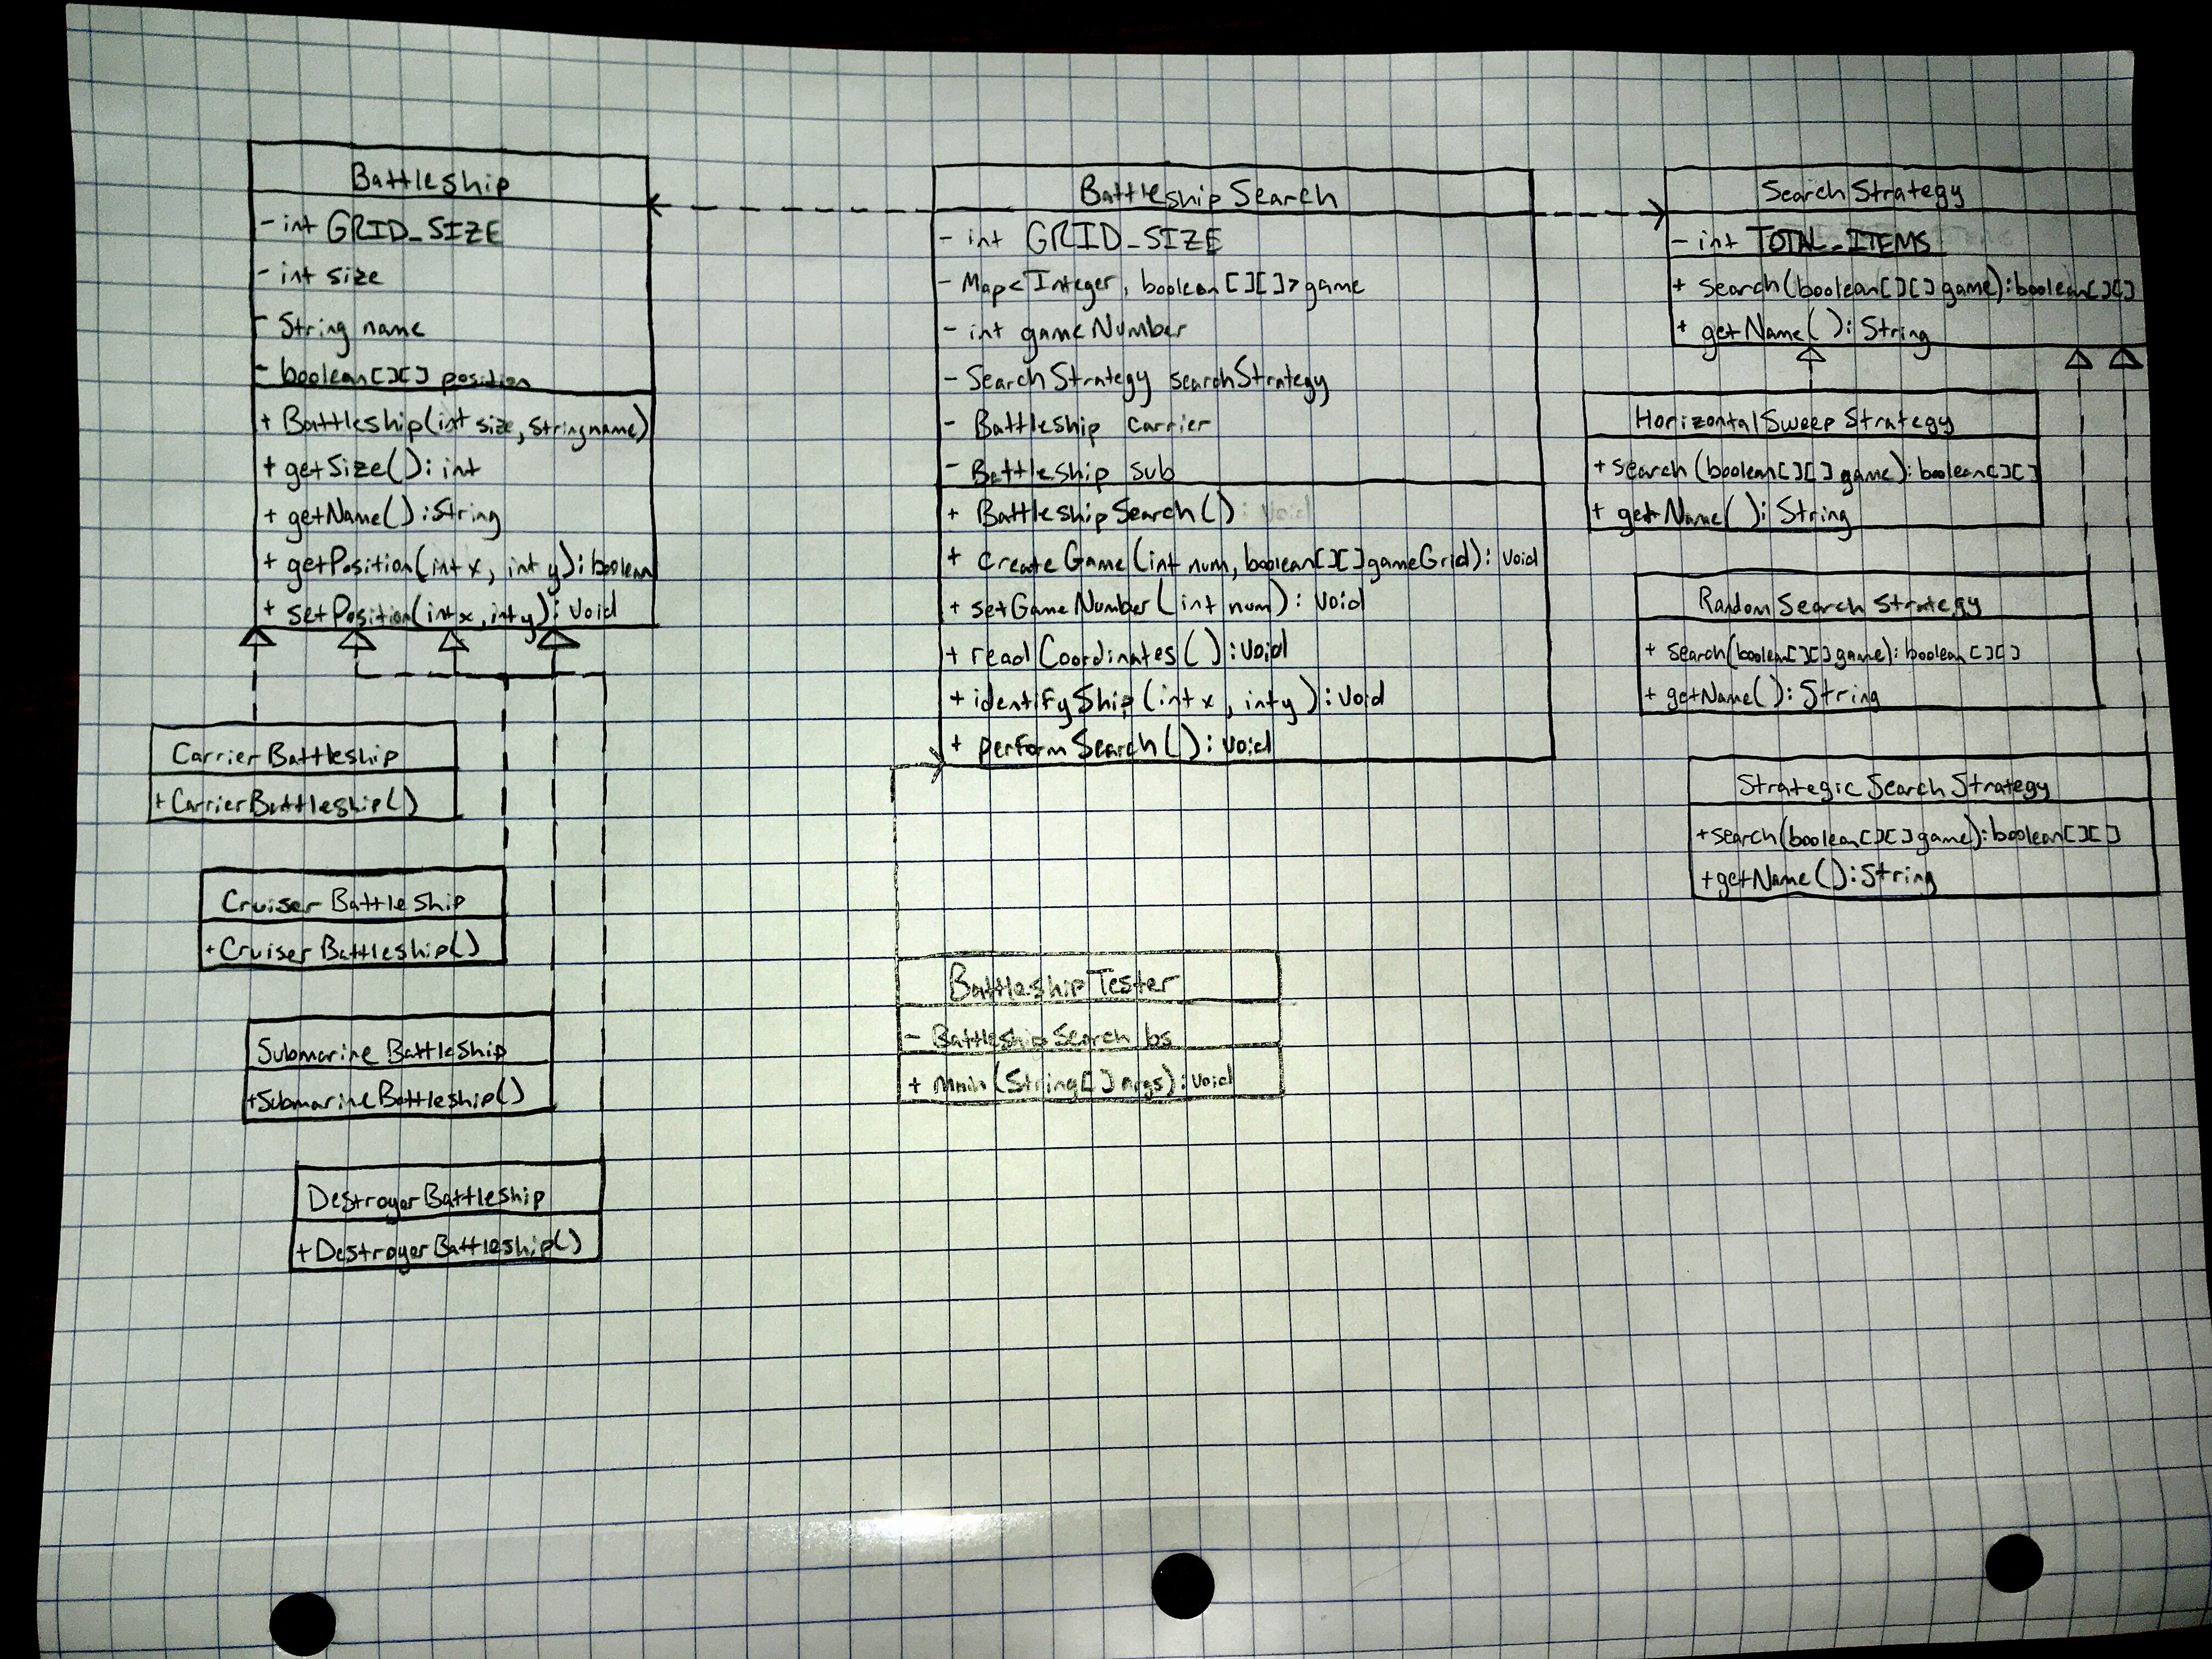 Battleship
- int GRID_SIZE
- int size
- String name
- boolean[][] position
+ Battleship(int size, String name)
+ getSize(): int
+ getName(): String
+ getPosition(int x, int y): boolean
+ setPosition(int x, int y): void
CarrierBattleship
+CarrierBattleship()
CruiserBattleship
+CruiserBattleship()
SubmarineBattleship
+SubmarineBattleship()
DestroyerBattleship
+DestroyerBattleship()
BattleshipSearch
- int GRID_SIZE
- Map<Integer, boolean[][]> game
- int gameNumber
- SearchStrategy searchStrategy
- Battleship carrier
- Battleship sub
+ BattleshipSearch() : void
+ createGame(int num, boolean[][] gameGrid): void
+ setGameNumber(int num): void
+ readCoordinates(): void
+ identifyShip(int x, int y): void
+ performSearch(): void
BattleshipTester
- BattleshipSearch bs
+ main(String[] args): void
SearchStrategy
- int TOTAL_ITEMS
+ search(boolean[][] game): boolean[][]
+ getName(): String
HorizontalSweepStrategy
+ search(boolean[][] game): boolean[][]
+ getName(): String
RandomSearchStrategy
+ search(boolean[][] game): boolean[][]
+ getName(): String
StrategicSearchStrategy
+search(boolean[][] game): boolean[][]
+getName(): String